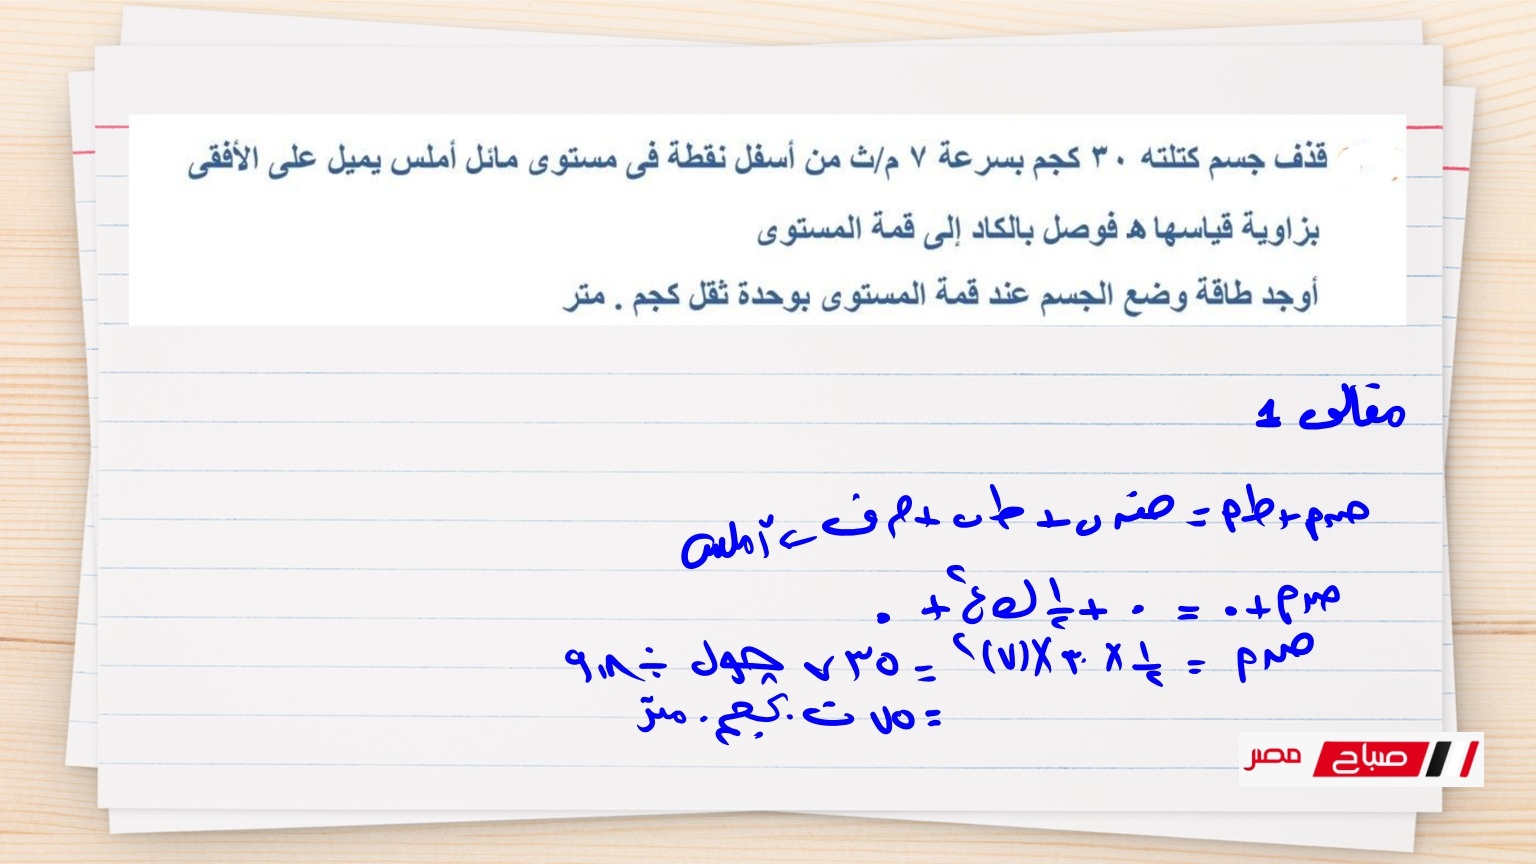 قذف جسم كتلته ٣٠ كجم بسرعة ٧ م/ث من أسفل نقطة فى مستوى مائل أملس يميل على الأفقى
بزاوية قياسها هـ فوصل بالكاد إلى قمة المستوى
أوجد طاقة وضع الجسم عند قمة المستوى بوحدة ثقل كجم . متر
مقالى 1
ضم + طم = ضب + طب + م ف ← أملس
ضم + ٠ = ٠ + ١/٢ ك ع٢ + ٠
ضم = ١/٢ × ٣٠ × (٧)٢ = ٧٣٥ جول ÷ ٩,٨
= ٧٥ ث . كجم . متر
صباح مصر